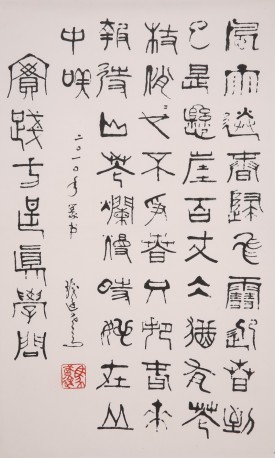 風雨送春歸飛雪迎春到
已是懸崖百丈冰猶有花
枝俏也不爭春只把春來
報待山花爛漫時她在丛
中咲
二〇一〇年篆书
實踐方是眞學問